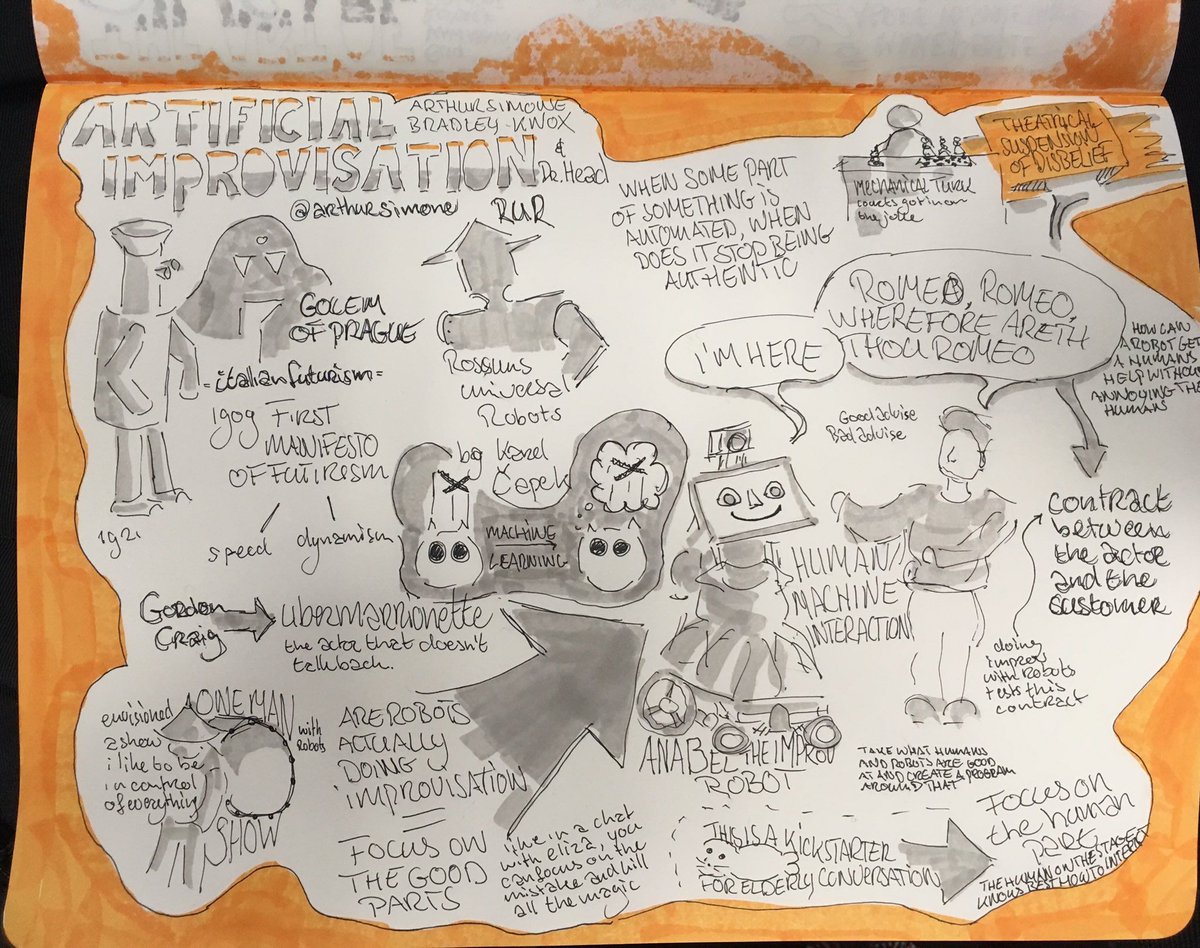 ARTIFICIAL
IMPROVISATION
ARTHUR SIMONE
BRADLEY KNOX
&
Dr. Head
@arthursimone
RUR
GOLEM
OF PRAGUE
=italian futurism=
1909 FIRST
MANIFESTO
OF FUTIRESM
speed
dynamism
1921
Rossums
universal
Robots
by Karel
Čapek
MACHINE
LEARNING
WHEN SOME PART
OF SOMETHING IS
AUTOMATED, WHEN
DOES IT STOP BEING
AUTHENTIC
MECHANICAL TURK
counts got in on
the joke
THEATRICAL
SUSPENSION
OF DISBELIEF
I'M HERE
ROMEO, ROMEO,
WHEREFORE ARETH
THOU ROMEO
HOW CAN
A ROBOT GET
A HUMANS
HELP WITHOUT
ANNOYING THE
HUMANS
Good advise
Bad advise
HUMAN/
MACHINE
INTERACTION
CONTRACT
between
the actor
and the
customer
doing
improv
with Robots
tests this
contract
Gordon
Craig
ubermarrionette
the actor that doesn't
talkback.
envisioned
a show
i like to be
in control
of everything
ONE MAN
with
Robots
SHOW
ARE ROBOTS
ACTUALLY
DOING
IMPROVISATION
=
FOCUS ON
THE GOOD
PARTS
like in a chat
with eliza, you
can focus on the
mistake and kill
all the magic
ANABEL THE IMPROV
ROBOT
TAKE WHAT HUMANS
AND ROBOTS ARE GOOD
AT AND CREATE A PROGRAM
AROUND THAT
THIS IS A KICKSTARTER
FOR ELDERLY CONVERSATION
Focus on
the human
part
THE HUMAN ON THE STAGE
KNOWS BEST HOW TO